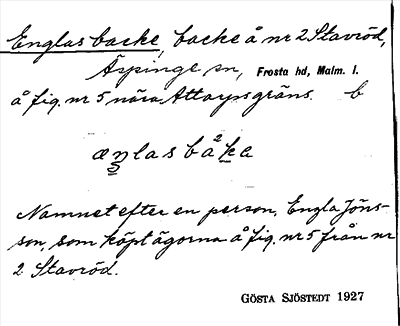 Englas backe, backe å nr 2 Stavröd,
Äspinge sn, Frosta hd, Malm. l.
å fig. nr 5 nära Attarps gräns. b
æŋlas bå²ka
Namnet efter en person, Engla Jöns-
son, som köpt ägorna å fig. nr 5 från nr
2 Stavröd.
GÖSTA SJÖSTEDT 1927